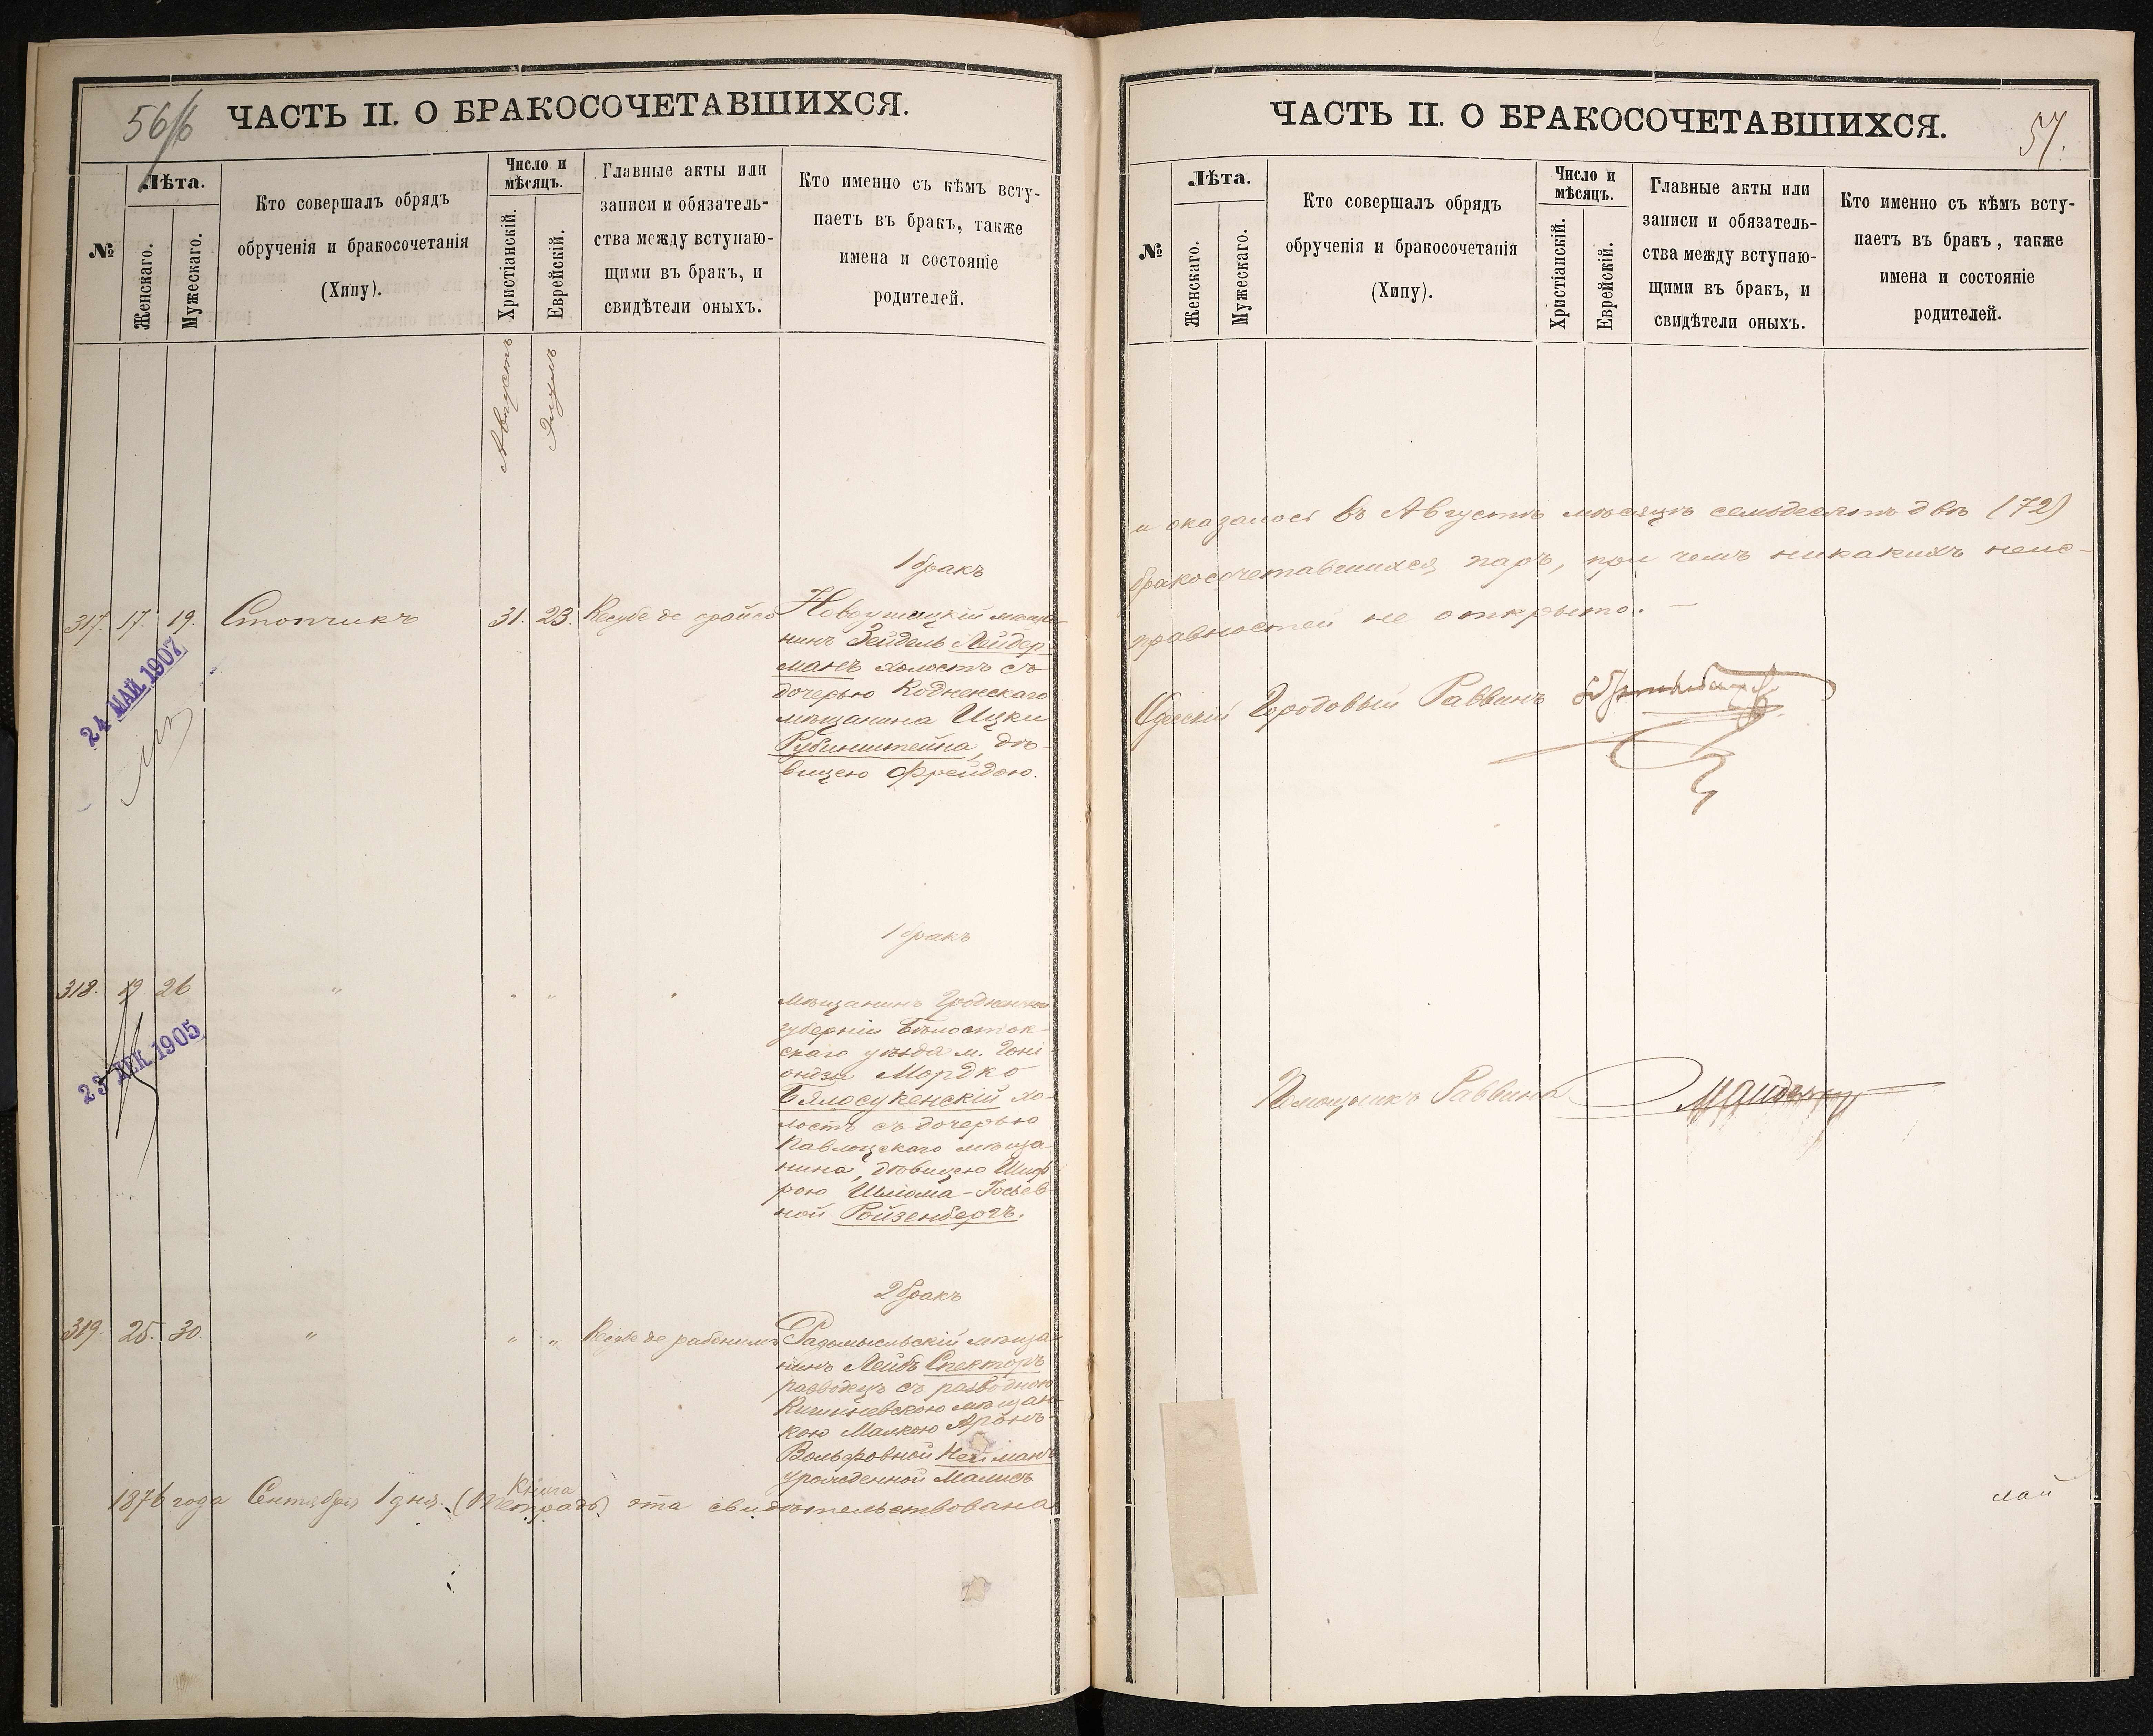 56/б
ЧАСТЬ II. О БРАКОСОЧЕТАВШИХСЯ.
№
Лѣта.
Женскаго.
Мужескаго.
Кто совершалъ обрядъ
обрученія и бракосочетанія
(Хипу).
Число и
мѣсяцъ.
Христіанскій.
Еврейскій.
Главные акты или
записи и обязатель-
ства между вступаю-
щими въ бракъ, и
свидѣтели оныхъ.
Кто именно съ кѣмъ всту-
паетъ въ бракъ, также
имена и состояніе
родителей.
Августъ
Элулъ
1 бракъ
317. 17. 19. Стопчикъ 31. 23. Новоушицкій мѣща-
нинъ Зейдель Лейдер-
манъ холостъ съ
дочерью Кодненскаго
мѣщанина Ицки
Рубинштейна, дѣ-
вицею Фрейдою.
24 МАЙ 1907
1 бракъ
318. 19 26 " " " " мѣщанинъ Гродненской
губерніи Бѣлосток-
скаго уѣзда м. Гоні-
ондзы Мордко
Бялосукенскій хо-
лостъ съ дочерью
Паволоцскаго мѣща-
нина, дѣвицею Шиф-
рою Шліома-Іосьев-
ной Ройзенбергъ.
23 ДЕК. 1905
2 бракъ
319. 25. 30. " " " Радомысльскій мѣща-
нинъ Лейбъ Спекторъ
разводецъ съ разводною
Кишиневскою мѣщан-
кою Малкою Аронъ-
Вольфовной Нейманъ
урожденной Малисъ
Книга
1876 года Сентября 1 дня. (Тетрадь) эта свидѣтельствована
ЧАСТЬ II. О БРАКОСОЧЕТАВШИХСЯ.
57.
№
Лѣта.
Женскаго.
Мужескаго.
Кто совершалъ обрядъ
обрученія и бракосочетанія
(Хипу).
Число и
мѣсяцъ.
Христіанскій.
Еврейскій.
Главные акты или
записи и обязатель-
ства между вступаю-
щими въ бракъ, и
свидѣтели оныхъ.
Кто именно съ кѣмъ всту-
паетъ въ бракъ, также
имена и состояніе
родителей.
и оказалось въ Августѣ мѣсяцѣ семьдесятъ двѣ (72)
бракосочетавшихся паръ, при чемъ никакихъ неис-
правностей не открыто. —
Одесскій Городовый Раввинъ
Помощникъ Раввина